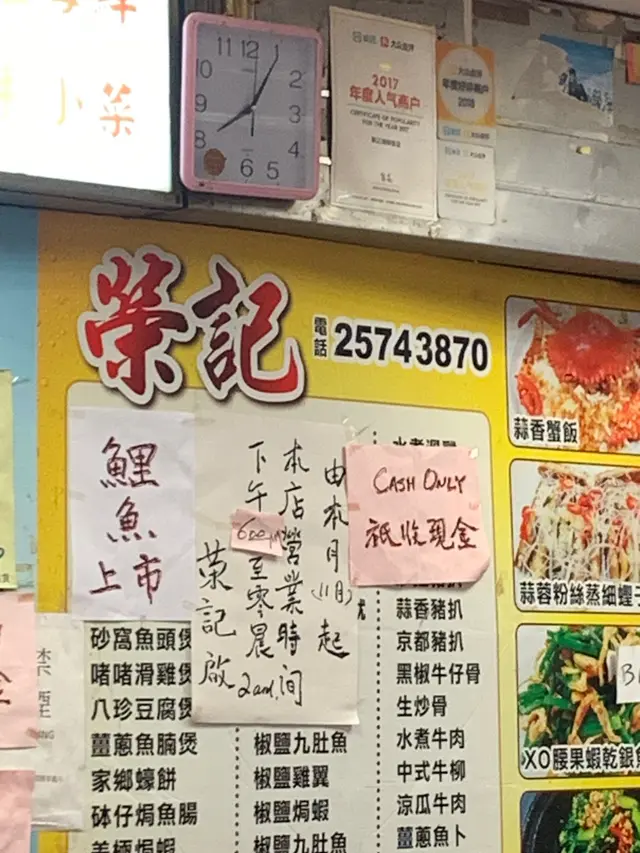 小菜
11 12 1
10 2
9 3
8 4
6 5
大众点评
2017
年度人气商户
CERTIFICATE OF POPULARITY
FOR THE YEAR 2017
大众点评
2018
榮記
電話 25743870
鯉魚上市
由本月(11月)起
本店營業時间
下午600pm至零晨2am.
榮記啟
CASH ONLY
祇收現金
砂窩魚頭煲
啫啫滑雞煲
八珍豆腐煲
薑蔥魚腩煲
家鄉蠔餅
砵仔焗魚腸
椒鹽九肚魚
椒鹽雞翼
椒鹽焗蝦
椒鹽九肚魚
蒜香豬扒
京都豬扒
黑椒牛仔骨
生炒骨
水煮牛肉
中式牛柳
涼瓜牛肉
薑蔥魚卜
蒜香蟹飯
蒜蓉粉絲蒸細蟶子
XO腰果蝦乾銀魚